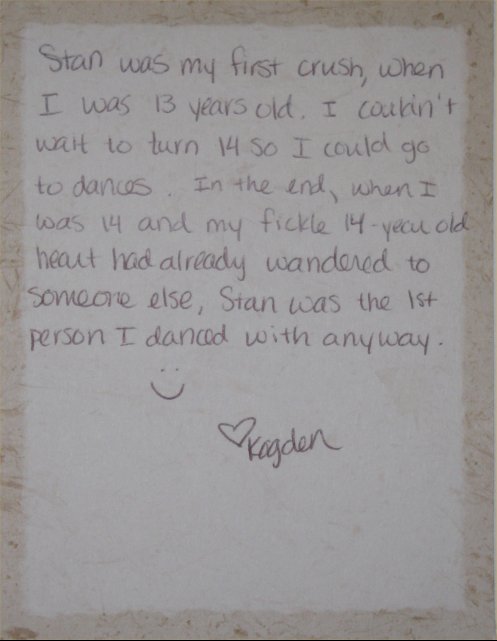 Stan was my first crush, when
I was 13 years old. I couldn't
wait to turn 14 so I could go
to dances. In the end, when I
was 14 and my fickle 14-year old
heart had already wandered to
someone else, Stan was the 1st
person I danced with anyway.
:)
♡Kagden